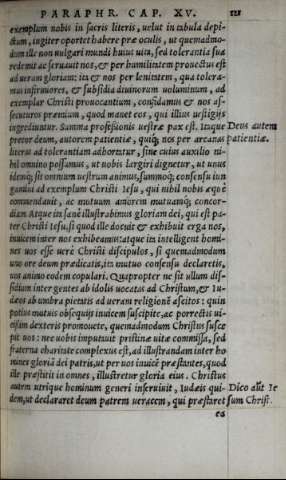 PARAPHR. CAP. XV. 121
exemplum nobis in sacris literis, uelut in tabula depi-
ctum, ingiter oportet habere præ oculis, ut quemadmo-
dum ille non uulgari mundi huius uita, sed tolerantia suæ
redemit ac seruauit nos, & per humilitatem prouectus est
ad ueram gloriam: ita & nos per lenitatem, qua tolera-
mus infirmiores, & subsidia diuinorum uoluminum, ad
exemplar Christi prouocantium, confidamus & nos as-
secuturos præmium, quod manet eos, qui illius uestigijs
ingrediuntur. Summa professionis uestræ pax est. Itaque Deus autem
precor deum, autorem patientiæ, quiq; nos per arcanas patientiæ.
literas ad tolerantiam adhortatur, sine cuius auxilio ni-
hil omnino possumus, ut uobis largiri dignetur, ut unus
idemq; sit omnium uestrum animus, summoq; consensu iun
gamini ad exemplum Christi Iesu, qui nihil nobis æque
commendauit, ac mutuum amorem mutuamq; concor-
diam. Atque ita sanè illustrabimus gloriam dei, qui est pa-
ter Christi Iesu, si quod ille docuit & exhibuit erga nos,
inuicem inter nos exhibeamus: atque ita intelligent homi-
nes uos esse uerè Christi discipulos, si quemadmodum
uno ore deum prædicatis, ita mutuo consensu declaretis,
uos animo eodem copulari. Quapropter ne sit ullum dis-
sidium inter gentes ab idolis uocatas ad Christum, & Iu-
dæos ab umbra pietatis ad ueram religionē ascitos: quin
potius mutuis obsequijs inuicem suscipite, ac porrectis ui-
cissim dexteris promouete, quemadmodum Christus susce
pit uos: nec uobis imputauit pristinæ uitæ commissa, sed
fraterna charitate complexus est, ad illustrandam inter ho
mines gloriā dei patris, ut per uos inuicē præstantes, quod
ille præstitit in omnes, illustretur gloria eius. Christus
autem utrique hominum generi inseruiuit, Iudæis qui- Dico aūt Ie
dem, ut declararet deum patrem ueracem, qui præstaret sum Christ.
ea